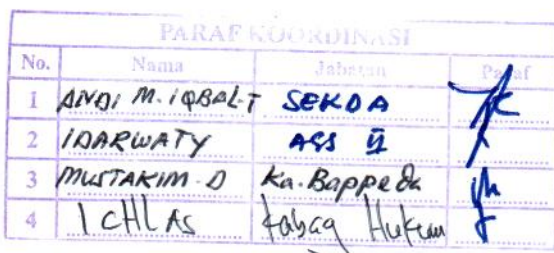 PARAF KOORDINASI
No. Nama Jabatan Paraf
1 ANDI M. IQBAL.T SEKDA
2 IDARWATY ASS II
3 MUSTAKIM.D Ka. Bappeda
4 ICHLAS Kabag Hukum